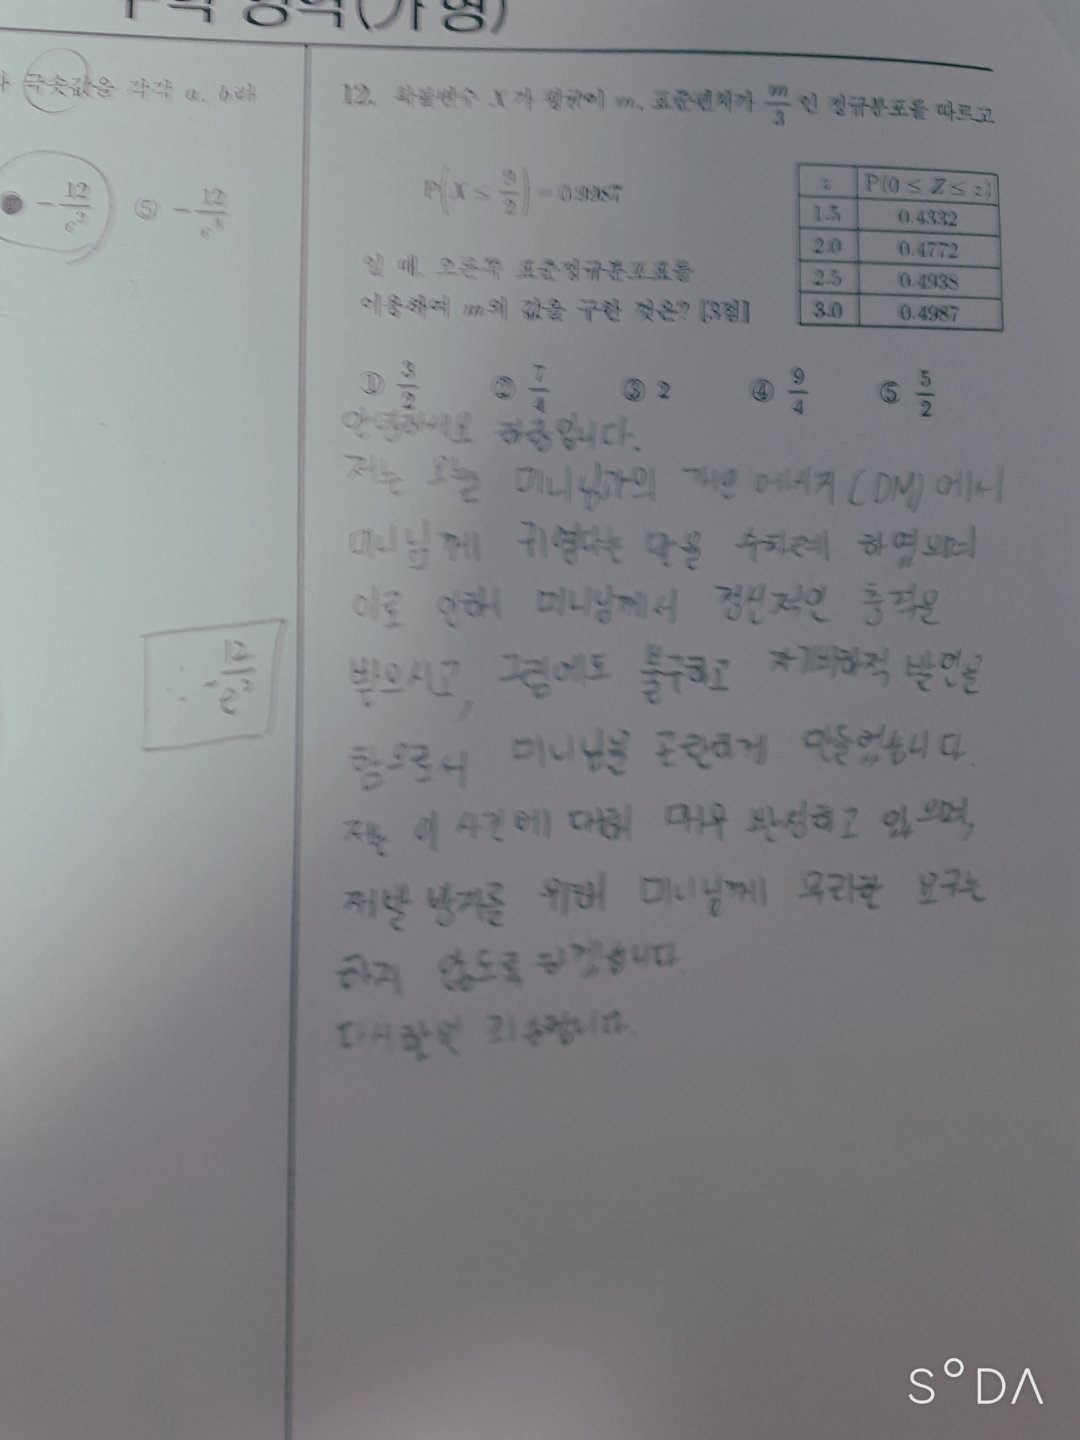 수학 영역(가형)
극솟값을 각각 a, b라
-12/e²
⑤ -12/e³
∴ -12/e²
12. 확률변수 X가 평균이 m, 표준편차가 m/3 인 정규분포를 따르고
P(X ≤ 9/2) = 0.9987
일 때, 오른쪽 표준정규분포표를
이용하여 m의 값을 구한 것은? [3점]
z P(0 ≤ Z ≤ z)
1.5 0.4332
2.0 0.4772
2.5 0.4938
3.0 0.4987
① 3/2 ② 7/4 ③ 2 ④ 9/4 ⑤ 5/2
안녕하세요 입니다.
저는 오늘 미니님과의 개인 메세지 (DM)에서
미니님께 귀엽다는 말을 수차례 하였으며
이로 인해 미니님께서 정신적인 충격을
받으시고, 그럼에도 불구하고 자기비하적 발언을
함으로서 미니님을 곤란하게 만들었습니다.
저는 이 사건에 대해 매우 반성하고 있으며,
재발 방지를 위해 미니님께 무리한 요구는
하지 않도록 하겠습니다.
다시한번 죄송합니다.
SODA